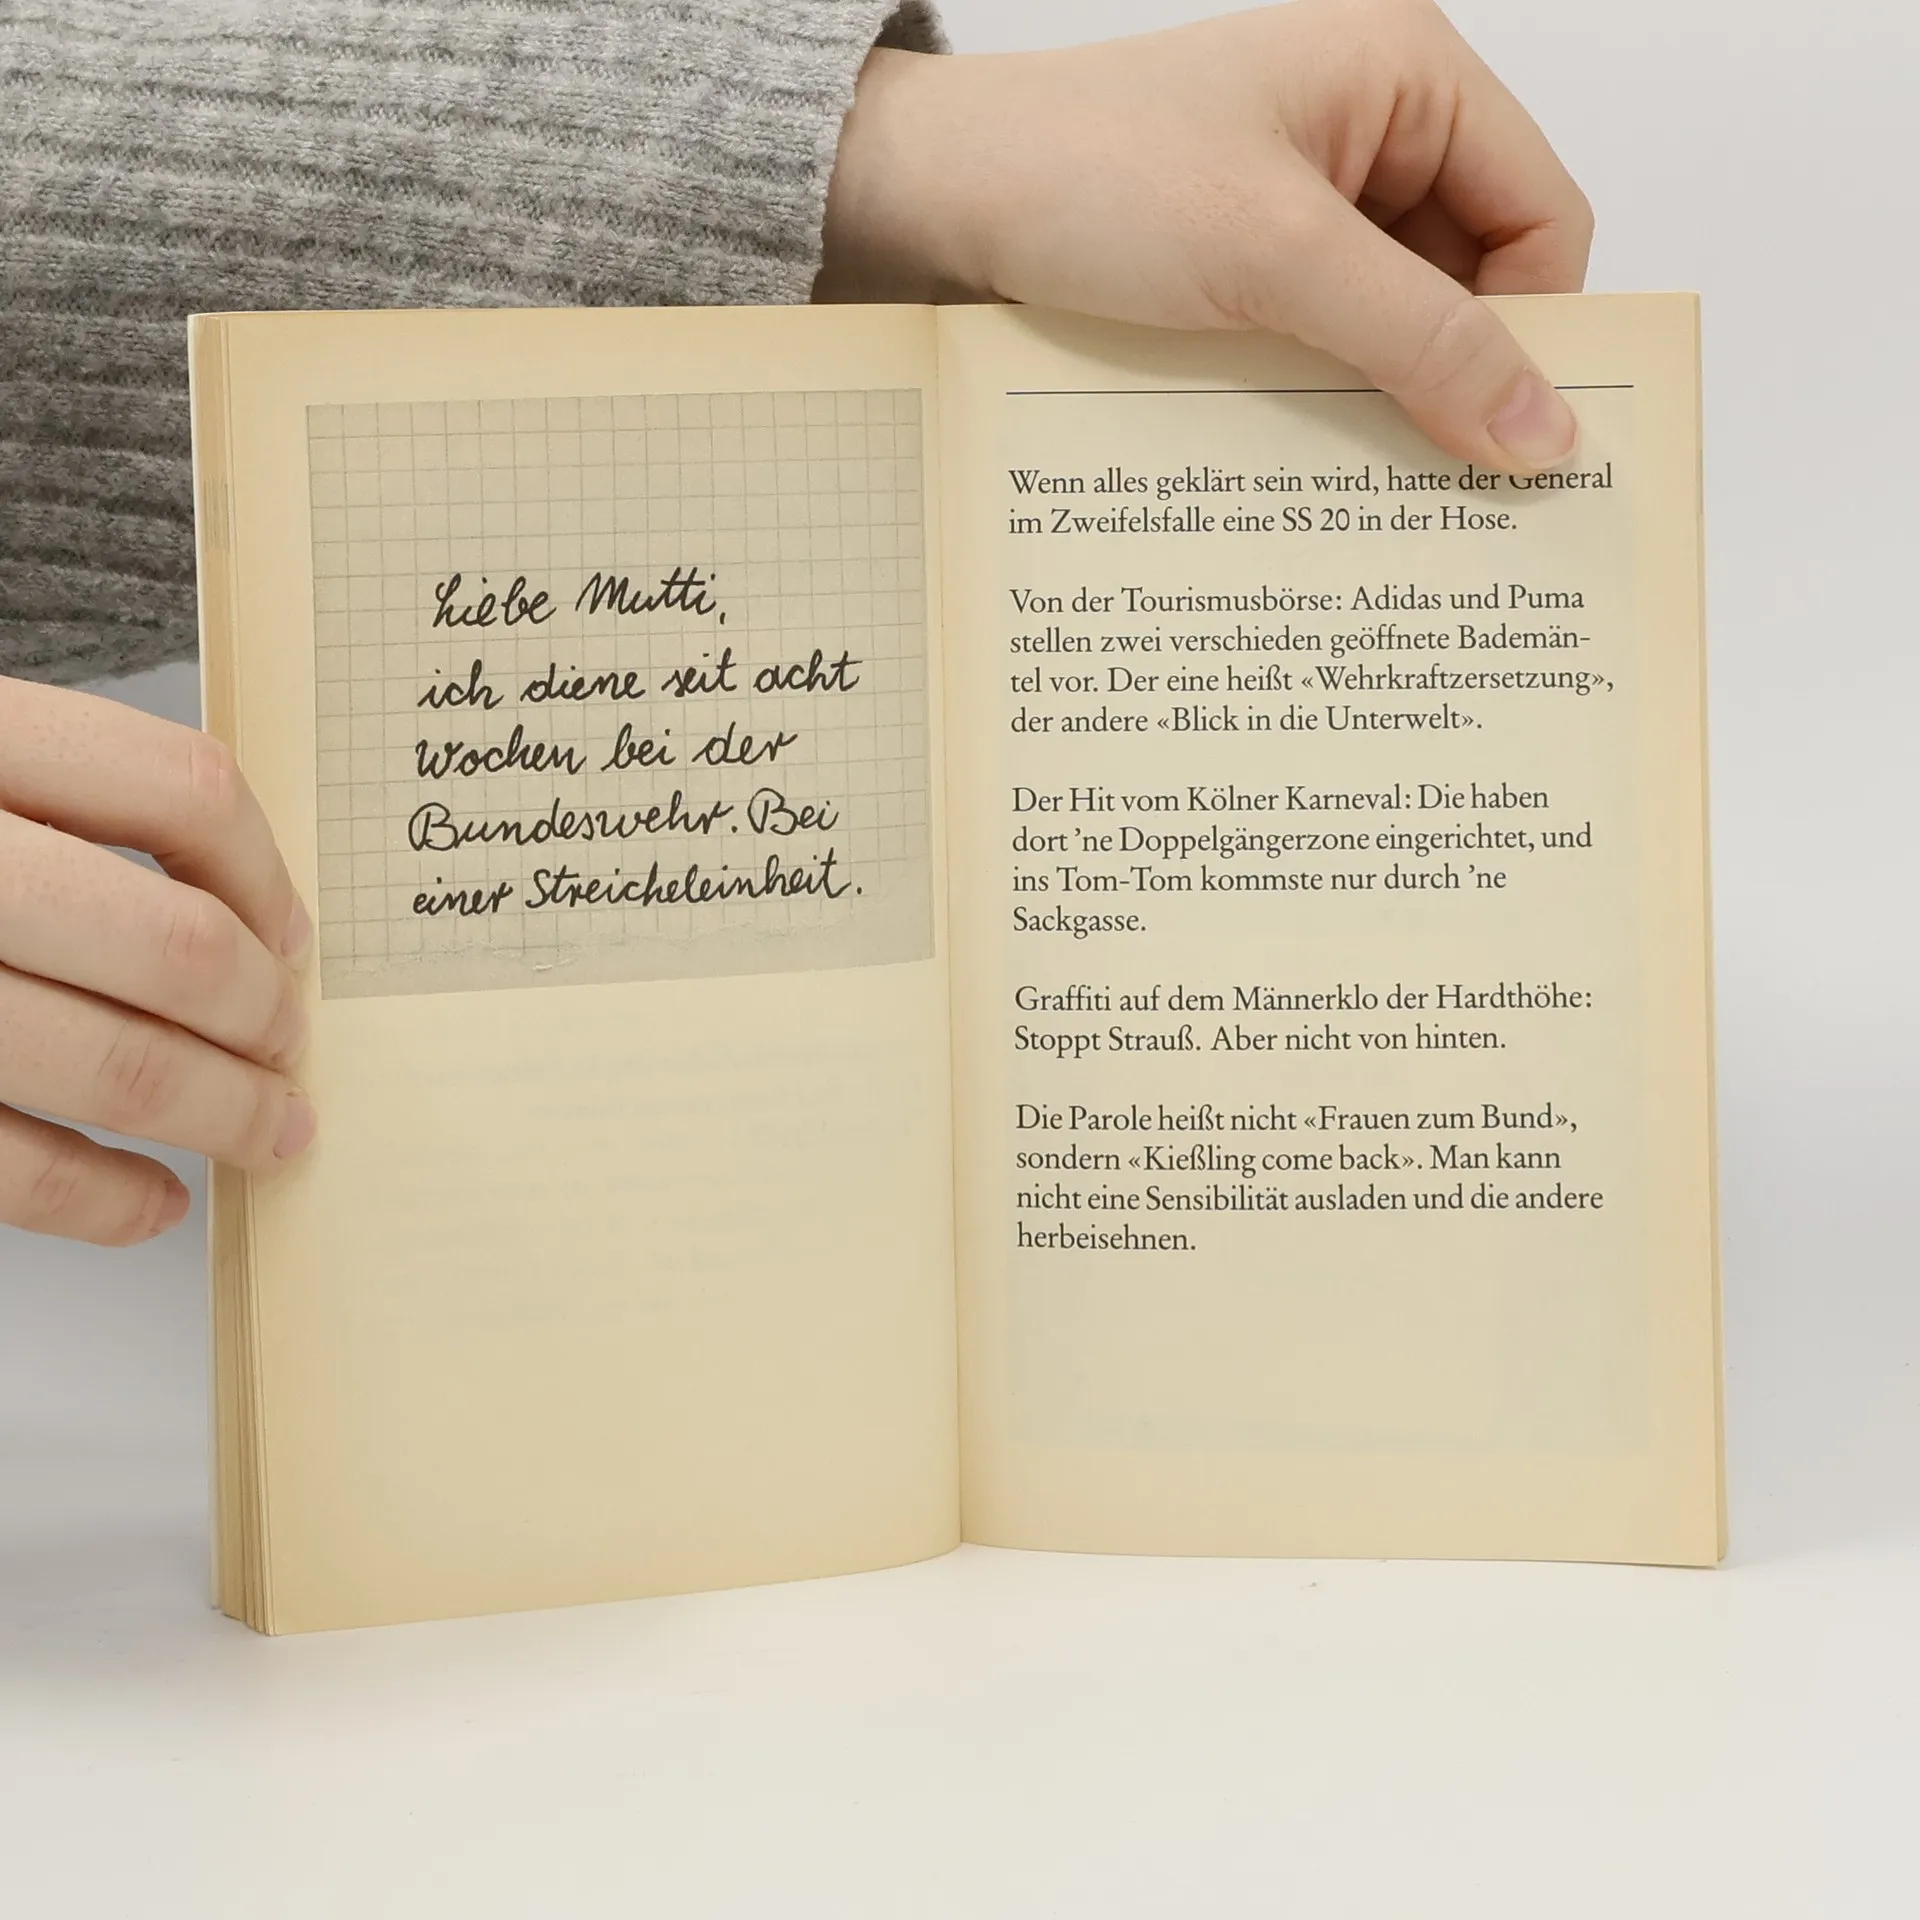 Liebe Mutti,
ich diene seit acht
Wochen bei der
Bundeswehr. Bei
einer Streicheleinheit.
Wenn alles geklärt sein wird, hatte der General
im Zweifelsfalle eine SS 20 in der Hose.
Von der Tourismusbörse: Adidas und Puma
stellen zwei verschieden geöffnete Bademän-
tel vor. Der eine heißt «Wehrkraftzersetzung»,
der andere «Blick in die Unterwelt».
Der Hit vom Kölner Karneval: Die haben
dort ’ne Doppelgängerzone eingerichtet, und
ins Tom-Tom kommste nur durch ’ne
Sackgasse.
Graffiti auf dem Männerklo der Hardthöhe:
Stoppt Strauß. Aber nicht von hinten.
Die Parole heißt nicht «Frauen zum Bund»,
sondern «Kießling come back». Man kann
nicht eine Sensibilität ausladen und die andere
herbeisehnen.